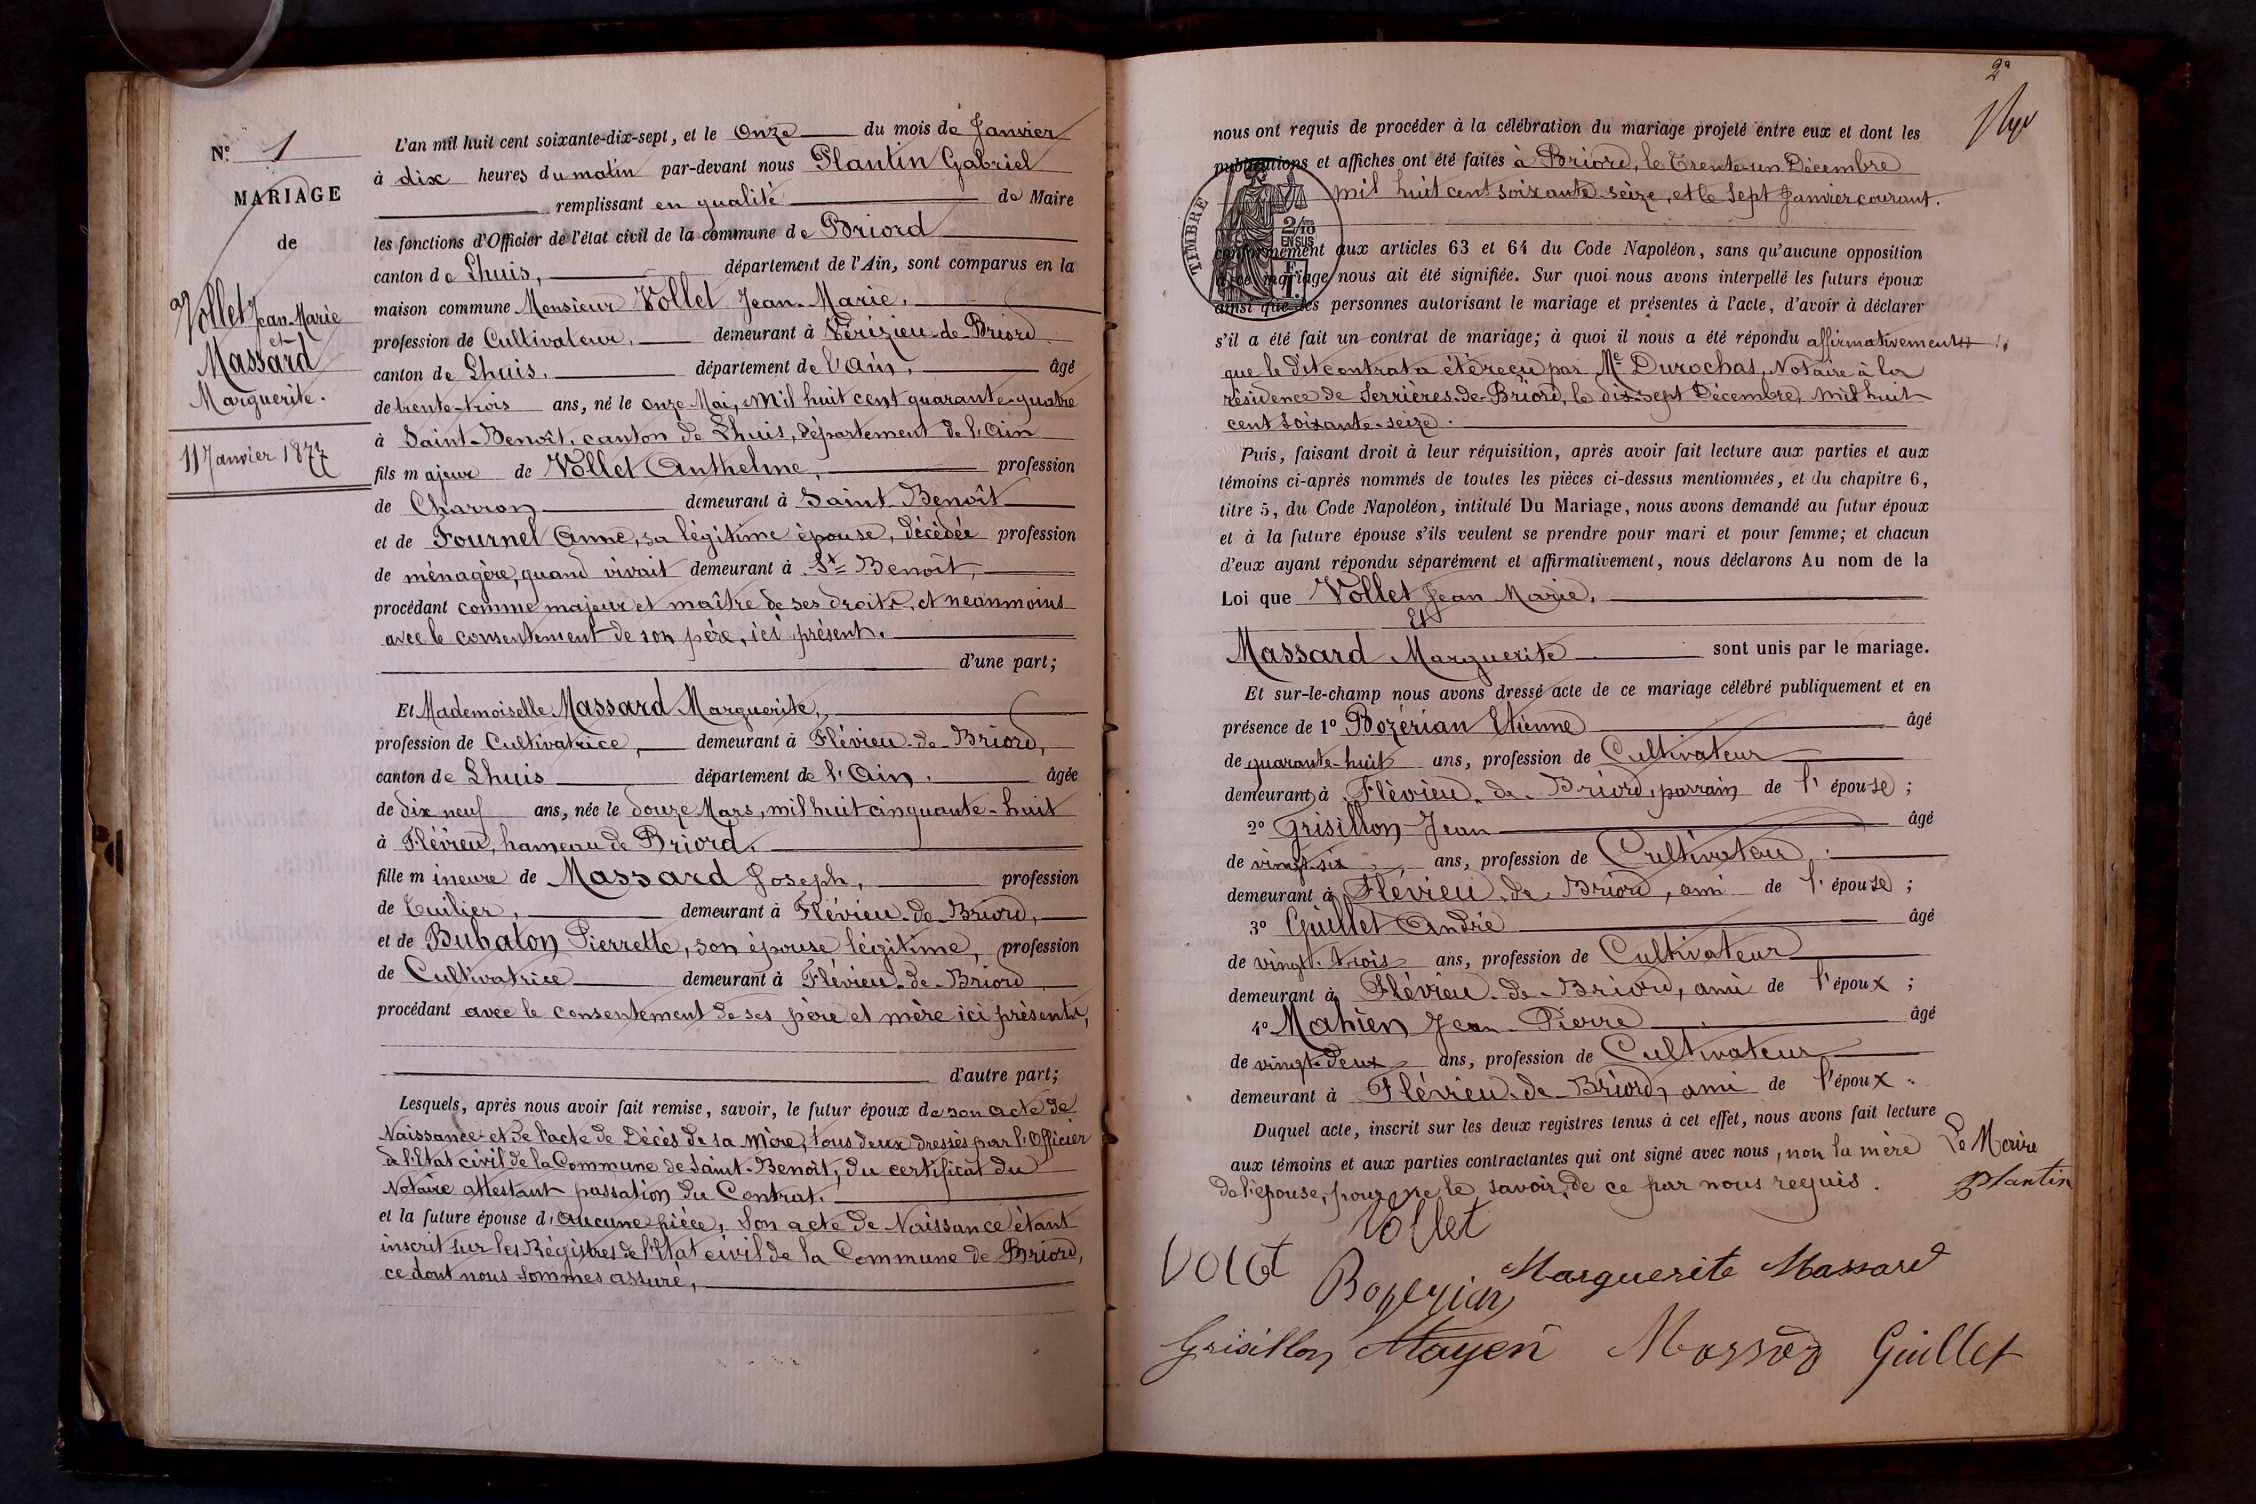 N.º 1
MARIAGE
de
Vollet Jean-Marie
et
Massard
Marguerite.
11 Janvier 1877
L'an mil huit cent soixante-dix-sept, et le Onze du mois de Janvier
à dix heures du matin par-devant nous Plantin Gabriel
remplissant en qualité de Maire
les fonctions d'Officier de l'état civil de la commune de Briord
canton de Lhuis, département de l'Ain, sont comparus en la
maison commune Monsieur Vollet Jean-Marie,
profession de Cultivateur, demeurant à Vérizieu-de-Briord
canton de Lhuis, département de l'Ain, âgé
de trente-trois ans, né le onze Mai, Mil huit cent quarante-quatre
à Saint-Benoît, canton de Lhuis, département de l'Ain
fils majeur de Vollet Anthelme, profession
de Charron demeurant à Saint-Benoît
et de Fournel Anne, sa légitime épouse, décédée profession
de ménagère, quand vivait demeurant à St Benoît,
procédant comme majeur et maître de ses droits, et neanmoins
avec le consentement de son père, ici présent.
d'une part;
Et Mademoiselle Massard Marguerite,
profession de Cultivatrice, demeurant à Flévieu-de-Briord,
canton de Lhuis département de l'Ain, âgée
de dix neuf ans, née le douze Mars, mil huit cinquante-huit
à Flévieu, hameau de Briord.
fille mineure de Massard Joseph, profession
de Tuilier, demeurant à Flévieu-de-Briord,
et de Bubaton Pierrette, son épouse légitime, profession
de Cultivatrice demeurant à Flévieu-de-Briord
procédant avec le consentement de ses père et mère ici présents,
d'autre part;
Lesquels, après nous avoir fait remise, savoir, le futur époux de son acte de
Naissance et de l'acte de Décès de sa Mère, tous deux dressés par l'Officier
de l'Etat civil de la Commune de Saint-Benoît, du certificat du
Notaire attestant passation du Contrat.
et la future épouse d'aucune pièce, Son acte de Naissance étant
inscrit sur les Régistres de l'Etat civil de la Commune de Briord,
ce dont nous sommes assuré,
2
nous ont requis de procéder à la célébration du mariage projeté entre eux et dont les
publications et affiches ont été faites à Briord, le Trente-un Décembre
mil huit cent soixante seize, et le Sept Janvier courant.
TIMBRE
2/10
EN SUS
conformément aux articles 63 et 64 du Code Napoléon, sans qu'aucune opposition
à ce mariage nous ait été signifiée. Sur quoi nous avons interpellé les futurs époux
ainsi que les personnes autorisant le mariage et présentes à l'acte, d'avoir à déclarer
s'il a été fait un contrat de mariage; à quoi il nous a été répondu affirmativement
que le dit contrat a été reçu par Me Durochat, Notaire à la
résidence de Serrières-de-Briord, le dix-sept Décembre, mil huit
cent soixante-seize.
Puis, faisant droit à leur réquisition, après avoir fait lecture aux parties et aux
témoins ci-après nommés de toutes les pièces ci-dessus mentionnées, et du chapitre 6,
titre 5, du Code Napoléon, intitulé Du Mariage, nous avons demandé au futur époux
et à la future épouse s'ils veulent se prendre pour mari et pour femme; et chacun
d'eux ayant répondu séparément et affirmativement, nous déclarons Au nom de la
Loi que Vollet Jean Marie,
Et
Massard Marguerite sont unis par le mariage.
Et sur-le-champ nous avons dressé acte de ce mariage célébré publiquement et en
présence de 1º Bozérian Etienne âgé
de quarante-huit ans, profession de Cultivateur
demeurant à Flévieu-de-Briord, parrain de l'épouse;
2º Grisillon Jean âgé
de vingt-six ans, profession de Cultivateur.
demeurant à Flévieu-de-Briord, ami de l'épouse;
3º Guillet André âgé
de vingt-trois ans, profession de Cultivateur
demeurant à Flévieu-de-Briord, ami de l'époux;
4º Mahien Jean-Pierre âgé
de vingt-deux ans, profession de Cultivateur
demeurant à Flévieu-de-Briord, ami de l'époux.
Duquel acte, inscrit sur les deux registres tenus à cet effet, nous avons fait lecture
aux témoins et aux parties contractantes qui ont signé avec nous, non la mère
de l'épouse, pour ne le savoir, de ce par nous requis.
Le Maire
Plantin
Vollet
Volet
Bozerian
Marguerite Massard
Grisillon Mayen Massard Guillet